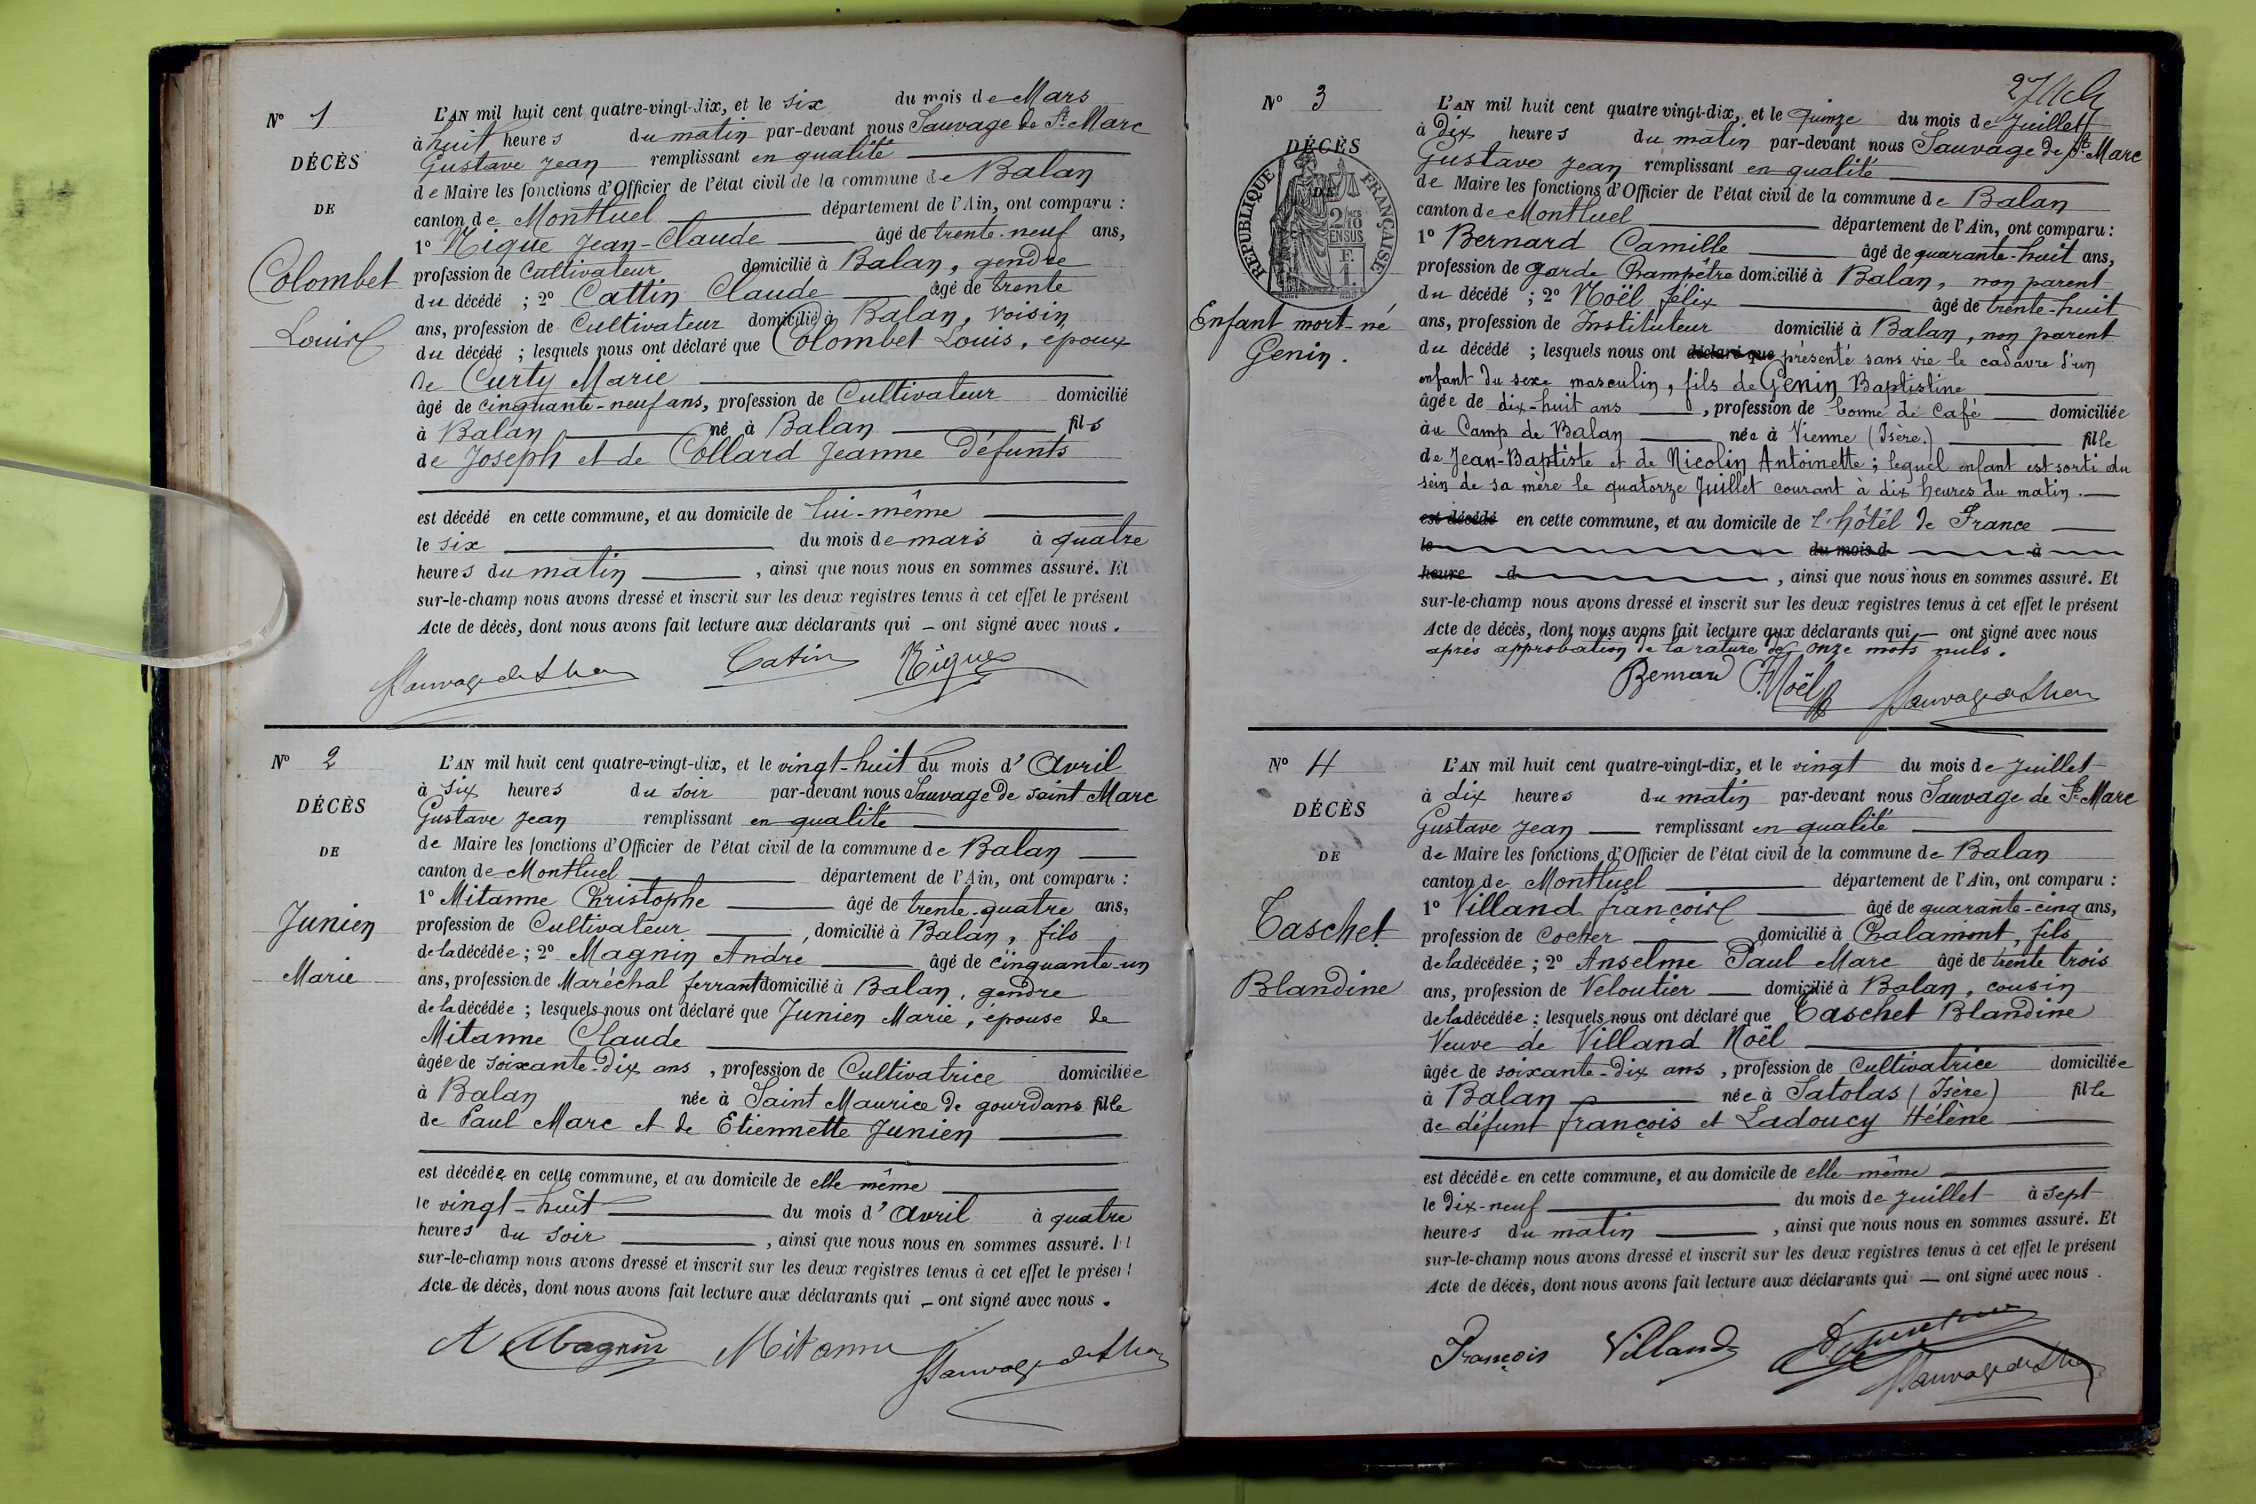 N° 1
DÉCÈS
DE
Colombet
Louis
L'AN mil huit cent quatre-vingt-dix, et le six du mois de Mars
à huit heures du matin par-devant nous Sauvage de St Marc
Gustave Jean remplissant en qualité
de Maire les fonctions d'Officier de l'état civil de la commune de Balan
canton de Montluel département de l'Ain, ont comparu :
1° Nique Jean-Claude âgé de trente-neuf ans,
profession de Cultivateur domicilié à Balan, gendre
du décédé ; 2° Cattin Claude âgé de trente
ans, profession de Cultivateur domicilié à Balan, voisin
du décédé ; lesquels nous ont déclaré que Colombet Louis, époux
de Curty Marie
âgé de cinquante-neuf ans, profession de Cultivateur domicilié
à Balan né à Balan fils
de Joseph et de Collard Jeanne Défunts
est décédé en cette commune, et au domicile de lui-même
le six du mois de mars à quatre
heures du matin, ainsi que nous nous en sommes assuré. Et
sur-le-champ nous avons dressé et inscrit sur les deux registres tenus à cet effet le présent
Acte de décès, dont nous avons fait lecture aux déclarants qui – ont signé avec nous.
Catin Nique
N° 2
DÉCÈS
DE
Junien
Marie
L'AN mil huit cent quatre-vingt-dix, et le vingt-huit du mois d'Avril
à six heures du soir par-devant nous Sauvage de saint Marc
Gustave Jean remplissant en qualité
de Maire les fonctions d'Officier de l'état civil de la commune de Balan
canton de Montluel département de l'Ain, ont comparu :
1° Mitanne Christophe âgé de trente-quatre ans,
profession de Cultivateur, domicilié à Balan, fils
de la décédée ; 2° Magnin André âgé de cinquante-un
ans, profession de Maréchal ferrant domicilié à Balan, gendre
de la décédée ; lesquels nous ont déclaré que Junien Marie, épouse de
Mitanne Claude
âgée de soixante-dix ans, profession de Cultivatrice domiciliée
à Balan née à Saint Maurice de gourdans fille
de Paul Marc et de Etiennette Junien
est décédée en cette commune, et au domicile de elle même
le vingt-huit du mois d'Avril à quatre
heures du soir, ainsi que nous nous en sommes assuré. Et
sur-le-champ nous avons dressé et inscrit sur les deux registres tenus à cet effet le présent
Acte de décès, dont nous avons fait lecture aux déclarants qui – ont signé avec nous.
A Magnin Mitanne
N° 3
DÉCÈS
DE
RÉPUBLIQUE FRANÇAISE
Enfant mort-né
Genin.
L'AN mil huit cent quatre vingt-dix, et le quinze du mois de Juillet
à dix heures du matin par-devant nous Sauvage de St Marc
Gustave Jean remplissant en qualité
de Maire les fonctions d'Officier de l'état civil de la commune de Balan
canton de Montluel département de l'Ain, ont comparu :
1° Bernard Camille âgé de quarante-huit ans,
profession de garde Champêtre domicilié à Balan, non parent
du décédé ; 2° Noël félix âgé de trente-huit
ans, profession de Instituteur domicilié à Balan, non parent
du décédé ; lesquels nous ont déclaré que présenté sans vie le cadavre d'un
enfant du sexe masculin, fils de Genin Baptistine
âgée de dix-huit ans, profession de bonne de café domiciliée
au Camp de Balan née à Vienne (Isère.) fille
de Jean-Baptiste et de Nicolin Antoinette ; lequel enfant est sorti du
sein de sa mère le quatorze Juillet courant à dix heures du matin.
est décédé en cette commune, et au domicile de l'hôtel de France
le du mois d à
heure d, ainsi que nous nous en sommes assuré. Et
sur-le-champ nous avons dressé et inscrit sur les deux registres tenus à cet effet le présent
Acte de décès, dont nous avons fait lecture aux déclarants qui – ont signé avec nous
après approbation de la rature de onze mots nuls.
Bernard F. Noël
N° 4
DÉCÈS
DE
Taschet
Blandine
L'AN mil huit cent quatre-vingt-dix, et le vingt du mois de Juillet
à dix heures du matin par-devant nous Sauvage de St Marc
Gustave Jean remplissant en qualité
de Maire les fonctions d'Officier de l'état civil de la commune de Balan
canton de Montluel département de l'Ain, ont comparu :
1° Villand françois âgé de quarante-cinq ans,
profession de cocher domicilié à Chalamont, fils
de la décédée ; 2° Anselme Paul Marc âgé de trente trois
ans, profession de Veloutier domicilié à Balan, cousin
de la décédée ; lesquels nous ont déclaré que Taschet Blandine
Veuve de Villand Noël
âgée de soixante-dix ans, profession de Cultivatrice domiciliée
à Balan née à Satolas (Isère) fille
de défunt françois et Ladoucy Hélène
est décédée en cette commune, et au domicile de elle même
le dix-neuf du mois de Juillet à sept
heures du matin, ainsi que nous nous en sommes assuré. Et
sur-le-champ nous avons dressé et inscrit sur les deux registres tenus à cet effet le présent
Acte de décès, dont nous avons fait lecture aux déclarants qui – ont signé avec nous.
François Villand